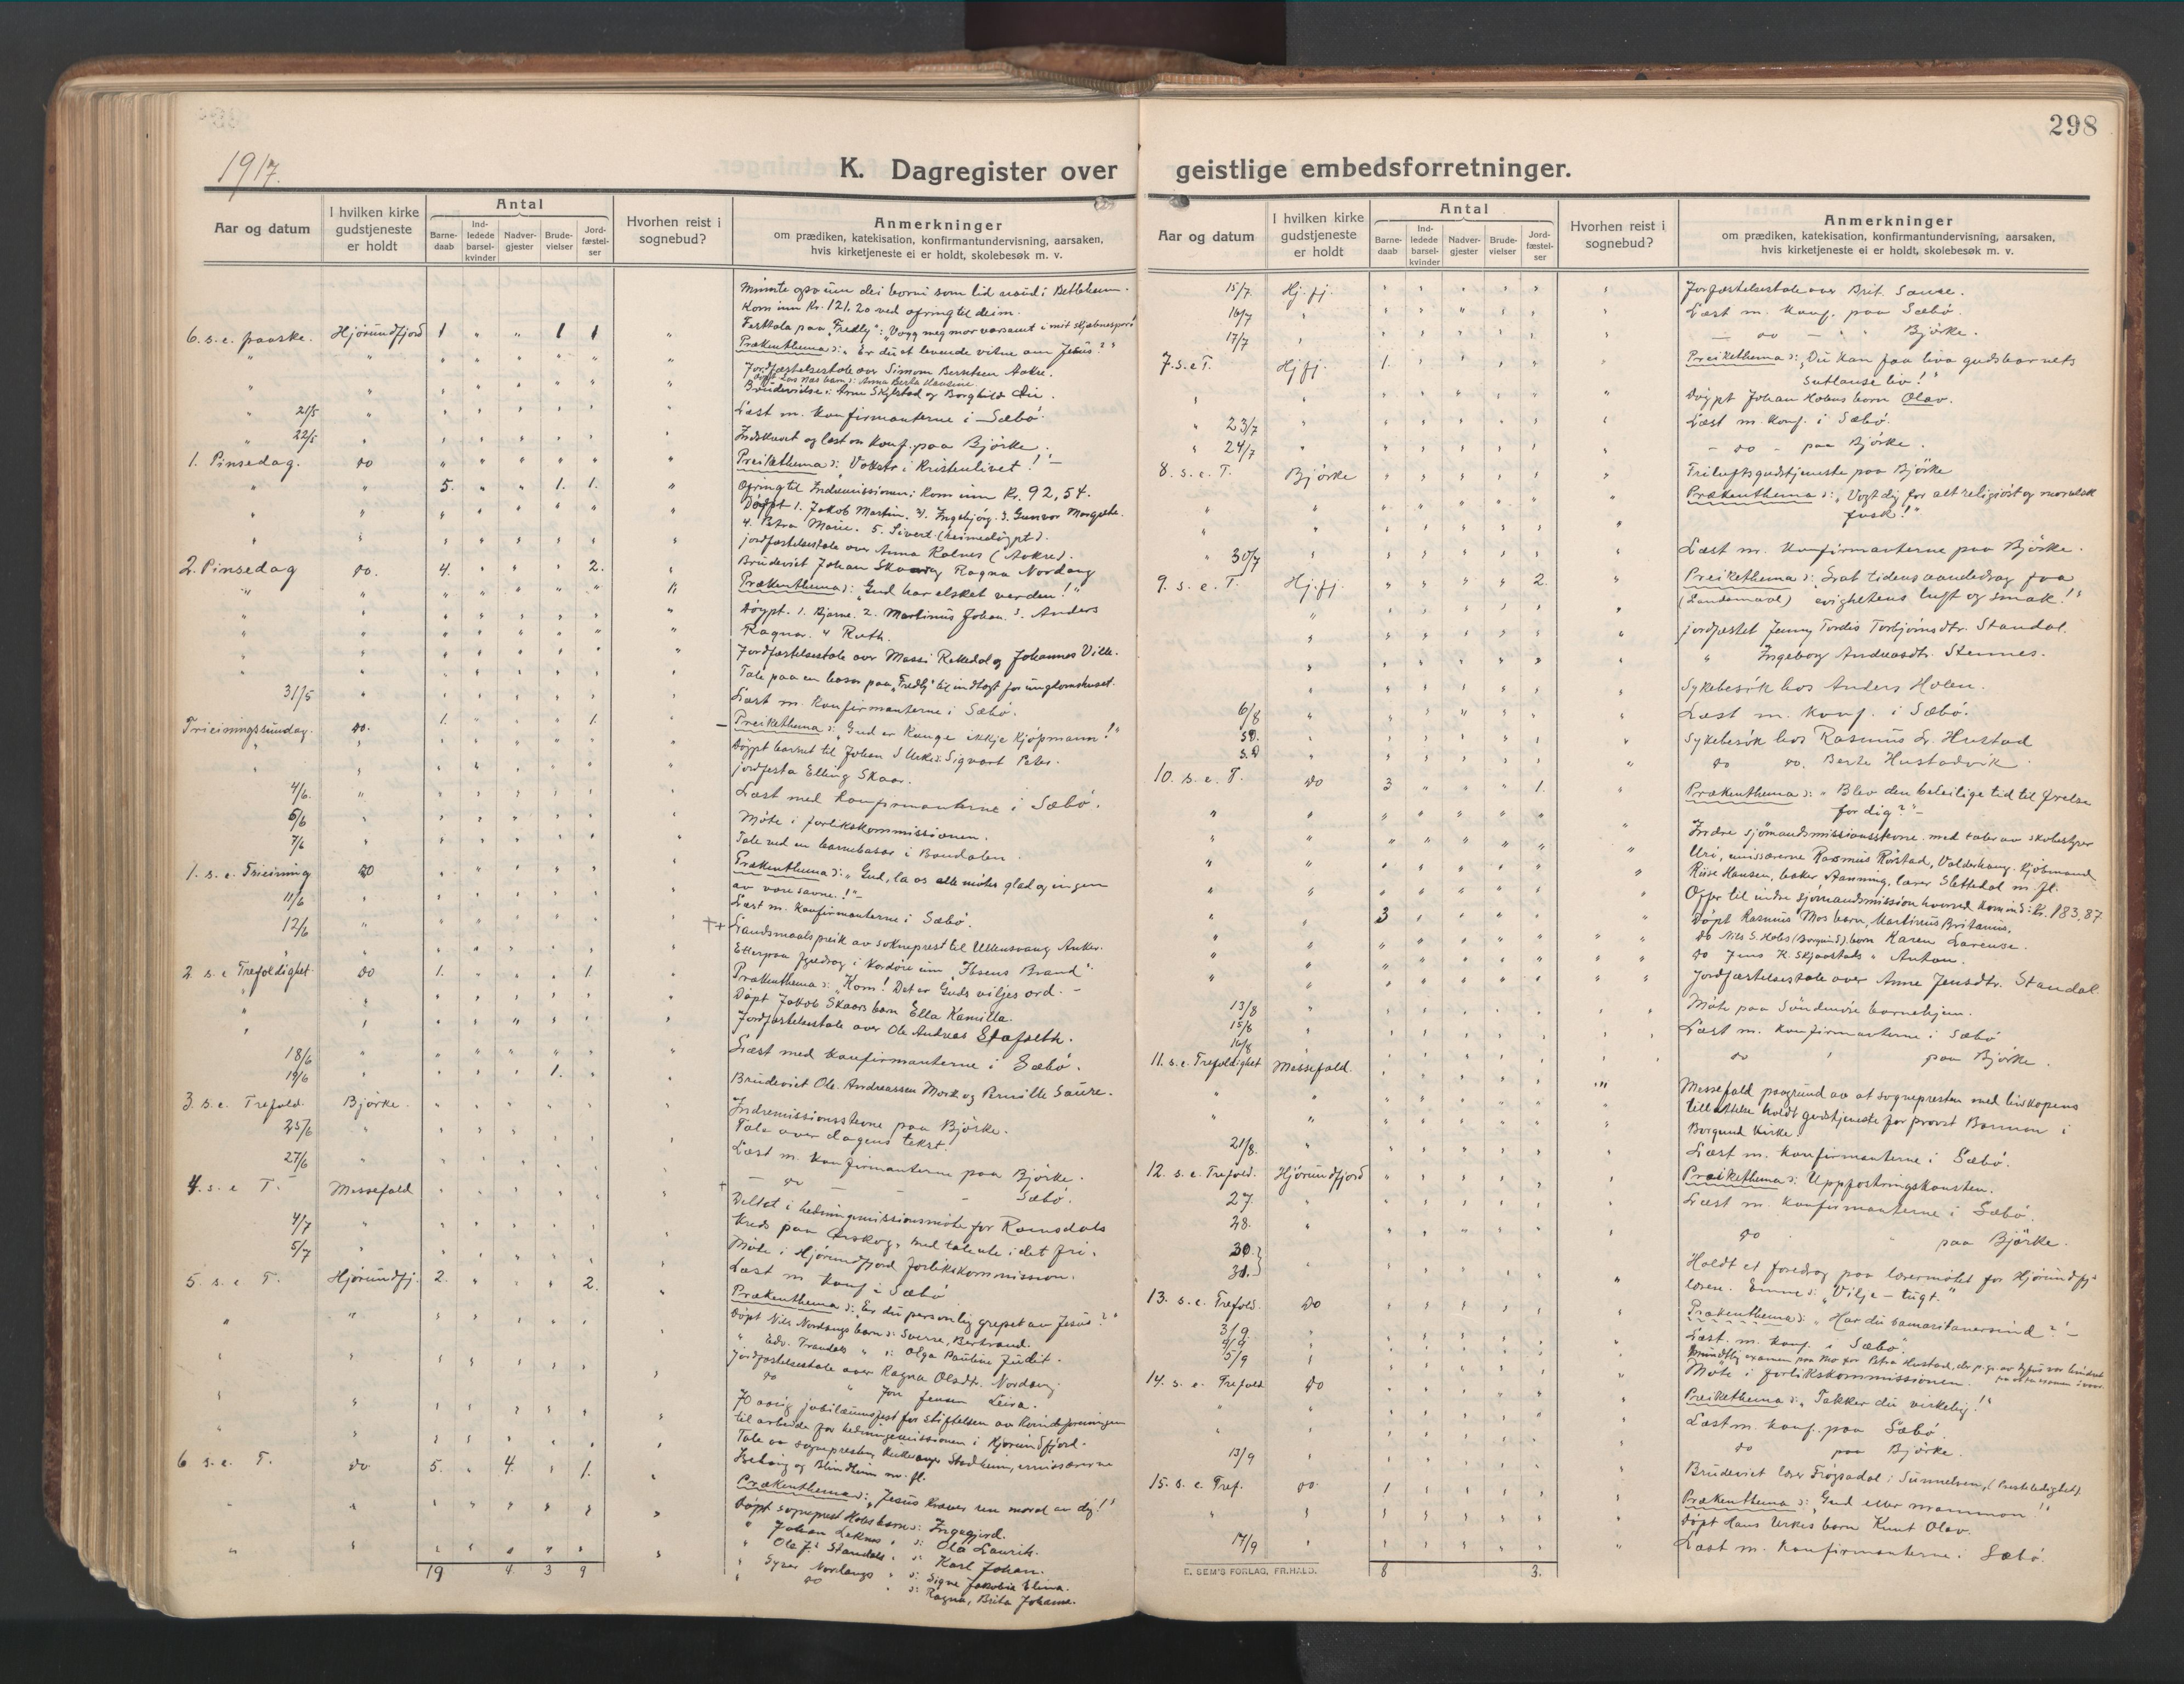 298
1917.
K. Dagregister over geistlige embedsforretninger.
Aar og datum
I hvilken kirke gudstjeneste er holdt
Antal
Barne-daab
Ind-ledede barsel-kvinder
Nadver-gjester
Brude-vielser
Jord-fæstel-ser
Hvorhen reist i sognebud?
Anmerkninger
om prædiken, katekisation, konfirmantundervisning, aarsaken,
hvis kirketjeneste ei er holdt, skolebesøk m. v.
Minnte ogso um dei borni som lid naud i Betlehem.
Kom inn Kr. 121.20 ved ofring til deim.
6. s. e. paaske. Hjørundfjord 1 " " 1 1 " Festtala paa "Fredly": "Vogg meg mor varsamt i mit
Prækenthema: "Er du et levende vitne om Jesus?"
Jordfæstelsestale over Simon Berntsen Aakre.
Brudevidse: Arne Skylstad og Borghild
21/5 Læst m. konfirmanterne i Sæbø.
22/5 Indskrevet og læst m konf. paa Bjørke.
1. Pinsedag. do Preikethema: "Vokstr i Kristenlivet!"
5. " " 1. 1. " Ofring til Indremissionen; kom inn Kr. 92,54.
Døypt 1. Jakob Martin. 2. Ingebjørg. 3. Gunvor Margrethe.
4. Petra Marie. 5. Sivert. (heimedøypt).
jordfæstelsestale over Anna Kalnes (Aakre).
2. Pinsedag do. 4. " " " 2. Brudeviet Johan Skaar og Ragna Nordang
Prækenthema: "Gud har elsket verden!"
Døypt. 1. Bjarne. 2. Martinus Johan. 3. Anders
Ragnar. 4 Ruth.
Jordfæstelsestale over Massi Rekedal og Johannes Ville.
Tale paa en basar paa "Fredly" til indtægt for ungdomshuset.
31/5 Læst m. konfirmanterne i Sæbø.
Trieiningssundag. do. 1. " " " 1. Preikethema: "Gud er Kunge ikkje kjøpmann!"
Døypt barnet til Johan S Urke: Sigvart Peter.
jordfesta Elling Skaar.
4/6. Læst med konfirmanterne i Sæbø.
6/6 Møte i forlikskommissionen.
7/6 Tale ved en barnebasar i Bondalen.
1. s. e. Trieining do Prækenthema: "Gud, la os alle møtes glad og ingen
av vore savne!"
11/6 Læst m. konfirmanterne i Sæbø.
12/6 Landsmaalspreik av sokneprest til Ullensvang Anker.
Etterpaa fyredrag i kordøre um "Ibsens Brand".
2 s. e Trefoldighet. do 1. " " " 1. Prækenthema: "Kom! Det er Guds viljes ord."
Døpt Jakob Skaars barn Ella Kamilla.
Jordfæstelsestale over Ole Andreas Stafseth.
18/6 Læst med konfirmanterne i Sæbø.
19/6 1. Brudeviet Ole Andreassen Mork og Pernille Saure.
3. s. e. Trefold. Bjørke. Indremissionsstevne paa Bjørke.
Tale over dagens tekst.
25/6 Læst m. konfirmanterne paa Bjørke.
27/6 do Sæbø.
4. s. e T. Messefald Deltat i hedningemissionsmøte for Romsdals
kreds paa Ørskog, med talende i det fri.
4/7 Møte i Hjørundfjord forlikskommission.
5/7 Læst m konf i Sæbø
5. s. e T. Hjørundfj. 2. " " " 2. Prækenthema: "Er du personlig grepet av Jesus?"
Døpt Nils Nordangs barn: Sverre, Bertrand.
" Edv. Trandals " : Olga Pauline Judit.
Jordfæstelsestale over Ragna Olsdtr. Nordang.
do " Jon Jensen Leira.
70 aarig jubilæumsfest for stiftelsen av kvindeforeningen
til arbeide for hedningemissionen i Hjørundfjord.
Tale av sognepresten, kirkesanger Stadheim, emissærerne
og Blindheim m. fl.
6 s. e. T. do 5. " 4. " 1. Prækenthema: "Jesus kræver ren moral av dig!"
Døpt sogneprest Hobs barn: Ingegjerd.
" Johan Leknes " : Ola Laurits.
" Ole J. Standals " : Karl Johan.
" Syver Nordangs " : Signe Jakobie Elina.
" do " : Ragna, Brita Johanne.
19 4. 3 9
Aar og datum
I hvilken kirke gudstjeneste er holdt
Antal
Barne-daab
Ind-ledede barsel-kvinder
Nadver-gjester
Brude-vielser
Jord-fæstel-ser
Hvorhen reist i sognebud?
Anmerkninger
om prædiken, katekisation, konfirmantundervisning, aarsaken,
hvis kirketjeneste ei er holdt, skolebesøk m. v.
15/7 Hj.fj. Jorfæstelsestale over Brit. Saure.
16/7 Læst m. konf. paa Sæbø.
17/7 — do — " Bjørke.
7. s. e T. Hj.fj. 1. Preikethema: "Du kan faa liva gudsbarnets
sutlause liv!"
Døypt Johan Holens born Olav.
23/7 Læst m. konf. i Sæbø.
24/7 - do - paa Bjørke.
8. s. e. T. Bjørke Friluftsgudstjeneste paa Bjørke
Prækenthema: "Vogt dig for alt religiøst og moralsk
fusk!"
30/7 Læst m. konfirmanterne paa Bjørke.
9. s. e. T. Hj.fj. 2. Preikethema: "Snat tidens aandedrag faa
(Landsmaal) evighetens luft og smak!"
jordfæstet Jenny Tordis Torbjørnsdtr. Standal.
" Ingeborg Andreasdtr. Stennes.
Sykebesøk hos Anders Holen.
6/8 Læst m. konf. i Sæbø.
s.D. Sykebesøk hos Rasmus Hustad
s.D do do. Berte Hustadvik
10. s. e. T. do 3 " " " 1. Prækenthema: "Blev den beleilige tid til frelse
for dig?"
Indre sjømandsmissionsstevne med taler av skolestyrer
Uri, emissærerne Rasmus Rørstad, Valderhaug. kjøbmand
Riise Hansen, baker Aanning, lærer Slettedal m. fl.
Offer til indre sjømandsmission hvorved kom ind: Kr. 183,87.
3 Døpt Rasmus Mos barn, Martinus Britanus.
do Nils S. Hobs (Borgund) barn Karen Larense.
do Jens K. Skjaastads " Anton.
Jordfæstelsestale over Anne Jensdtr. Standal.
13/8 Møte paa Søndmøre barnehjem.
15/8 Læst m. konfirmanterne i Sæbø
16/8 do paa Bjørke.
11. s. e. Trefoldighet Messefald. Messefald paagrund av at sognepresten med biskopens
tillatelse holdt gudstjeneste for provst Barman i
Borgund Kirke.
21/8. Læst m. konfirmanterne i Sæbø.
12. s. e. Trefold. Hjørundfjord Preikethema: Uppfostringskunsten.
27. Læst m. konfirmanterne i Sæbø.
28. do paa Bjørke.
30.
31. Holdt et foredrag paa lærermøtet for Hjørundfj.
Emne: "Vilje - tugt."
13. s. e. Trefold. do Prækenthema: "Har du samaritanersind?"
3/9 Læst. m. konf. i Sæbø.
4/9 Mundtlig examen paa Mo for Petra Hustad, der p. gr. av tyfus var hindret
5/9 Møte i forlikskommissionen.
14. s. e. Trefold do Preikethema: "Takker du virkelig!"
Læst m. konf. paa Sæbø.
13/9 do paa Bjørke.
Brudeviet lærer Frøysadal i Sunnelven, (Presteledighet).
15. s. e. Tref. do. 1 Prækenthema: "Gud eller mammon!"
Døpt Hans Urkes barn Knut Olav.
17/9 Læst m. konfirmanterne i Sæbø.
8 3.
E. SEM'S FORLAG, FR.HALD.